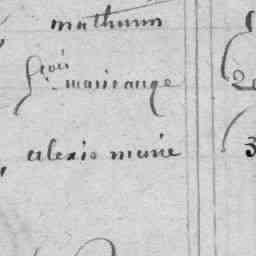 mathurin
frois
marie ange
alexis marie
3